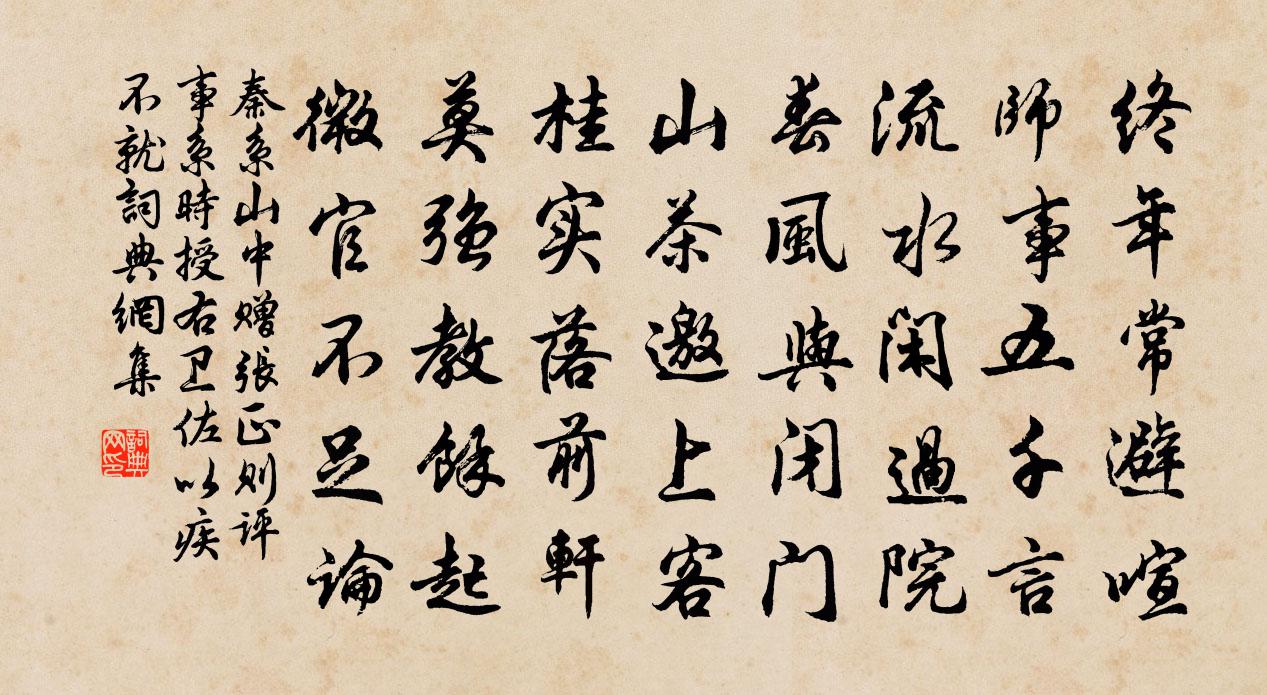 终年常避喧
師事五千言
流水閑過院
春風與闭门
山茶邀上客
桂实落前軒
莫强教餘起
微官不足論
秦系山中赠張正则评
事系時授右卫佐以疾
不就詞典網集
詞典
网印